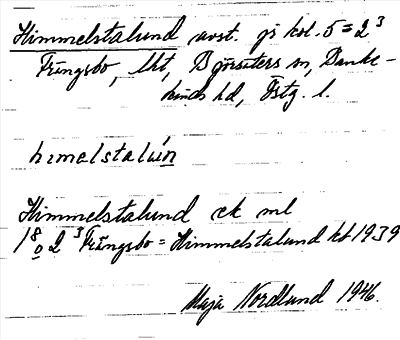 Himmelstalund avst. på kol. 5 = 2³
Fringsbo, lht, Björsäters sn, Banke-
kinds hd, Östg. l.
himelstalún
Himmelstalund ek ml
1 8/0 2³ Fringsbo = Himmelstalund kb 1939
Maja Nordlund 1946.